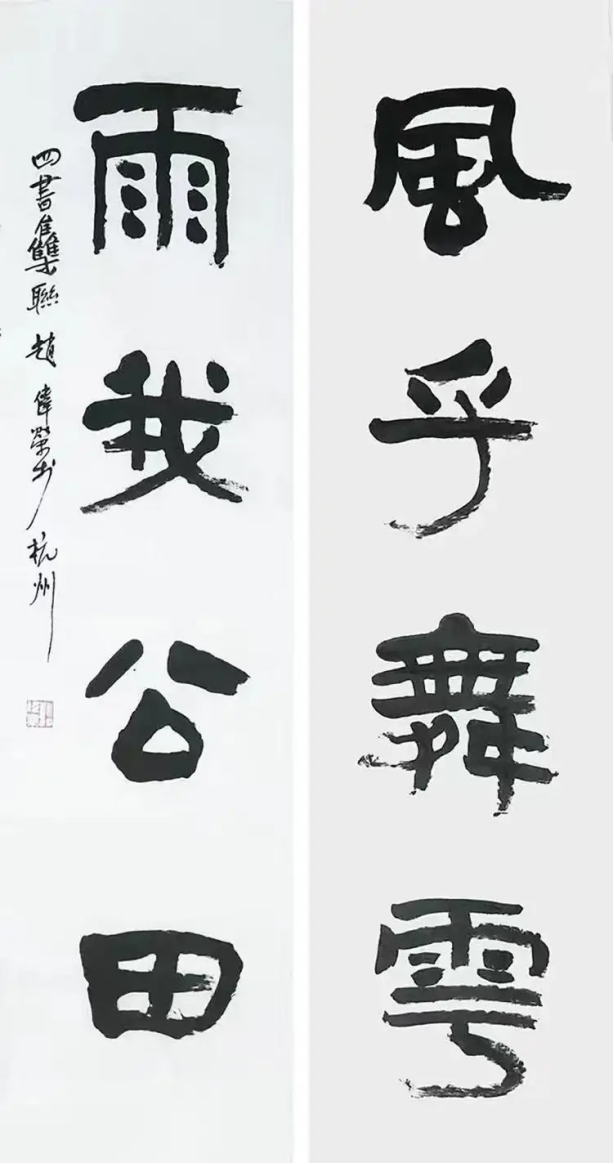 風乎舞雩
雨我公田
四書集聯 趙偉榮书 杭州